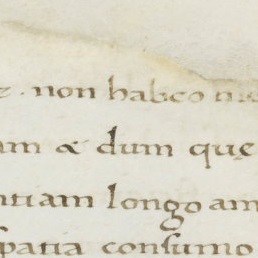 non habeo
am & dum quę
ntiam longo am
patia consumo